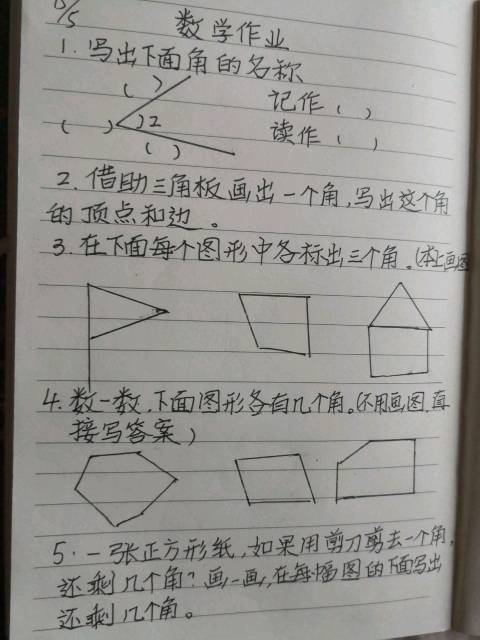 15/5
数学作业
1. 写出下面角的名称
( ) 记作 ( )
( ) 2 读作 ( )
( )
2. 借助三角板画出一个角,写出这个角
的顶点和边。
3. 在下面每个图形中各标出三个角。(本上画图
4. 数一数,下面图形各有几个角。(不用画图,直
接写答案)
5. 一张正方形纸,如果用剪刀剪去一个角,
还剩几个角?画一画,在每幅图的下面写出
还剩几个角。